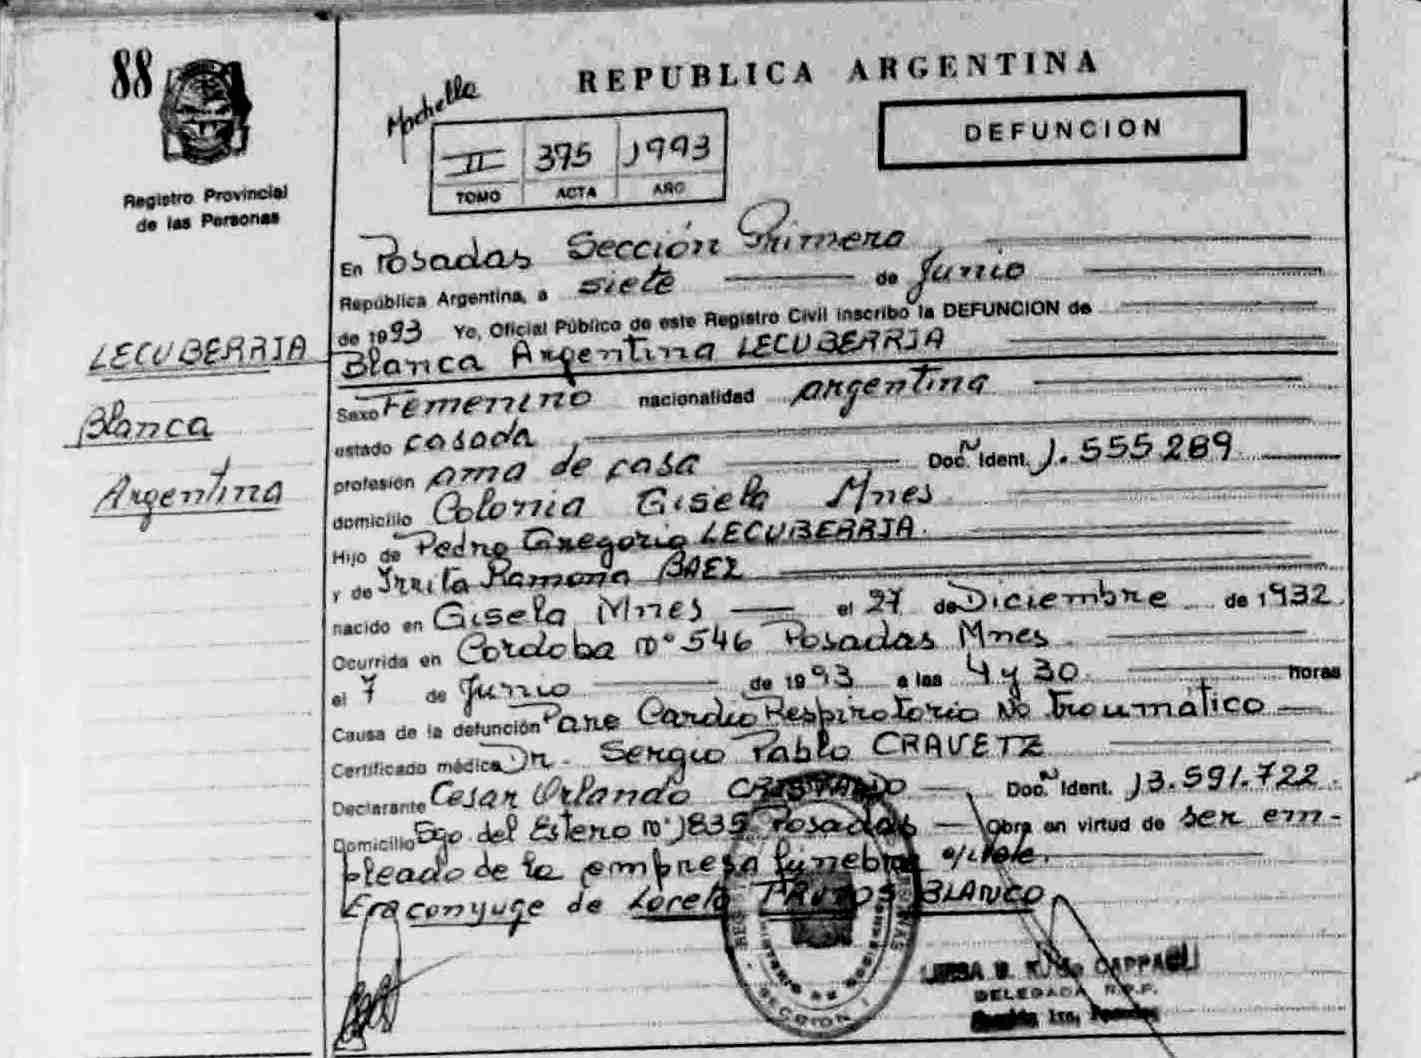 88
Registro Provincial
de las Personas
LECUBERRIA
Blanca
Argentina
REPUBLICA ARGENTINA
DEFUNCION
II 375 1993
TOMO ACTA AÑO
En Posadas Sección Primera
República Argentina, a siete de Junio
de 1993 Yo, Oficial Público de este Registro Civil inscribo la DEFUNCION de
Blanca Argentina LECUBERRIA
Sexo Femenino nacionalidad argentina
estado casada
profesión ama de casa Doc. Ident. 1.555.289
domicilio Colonia Gisela Mnes
Hijo de Pedro Gregorio LECUBERRIA
y de Ramona BAEZ
nacido en Gisela Mnes el 27 de Diciembre de 1932
Ocurrida en Cordoba n° 546 Posadas Mnes
el 7 de Junio de 1993 a las 4 y 30 horas
Causa de la defunción Paro Cardio Respiratorio No Traumático
Certificado médico Dr. Sergio Pablo CRAVETZ
Declarante Cesar Orlando Doc. Ident. 13.591.722
Domicilio Sgo del Estero n° 1835 Posadas Obra en virtud de ser em-
pleado de la empresa fúnebre
Era conyuge de Loreto BLANCO
CAPPAGLI
DELEGADA R.P.P.
SECCION 1